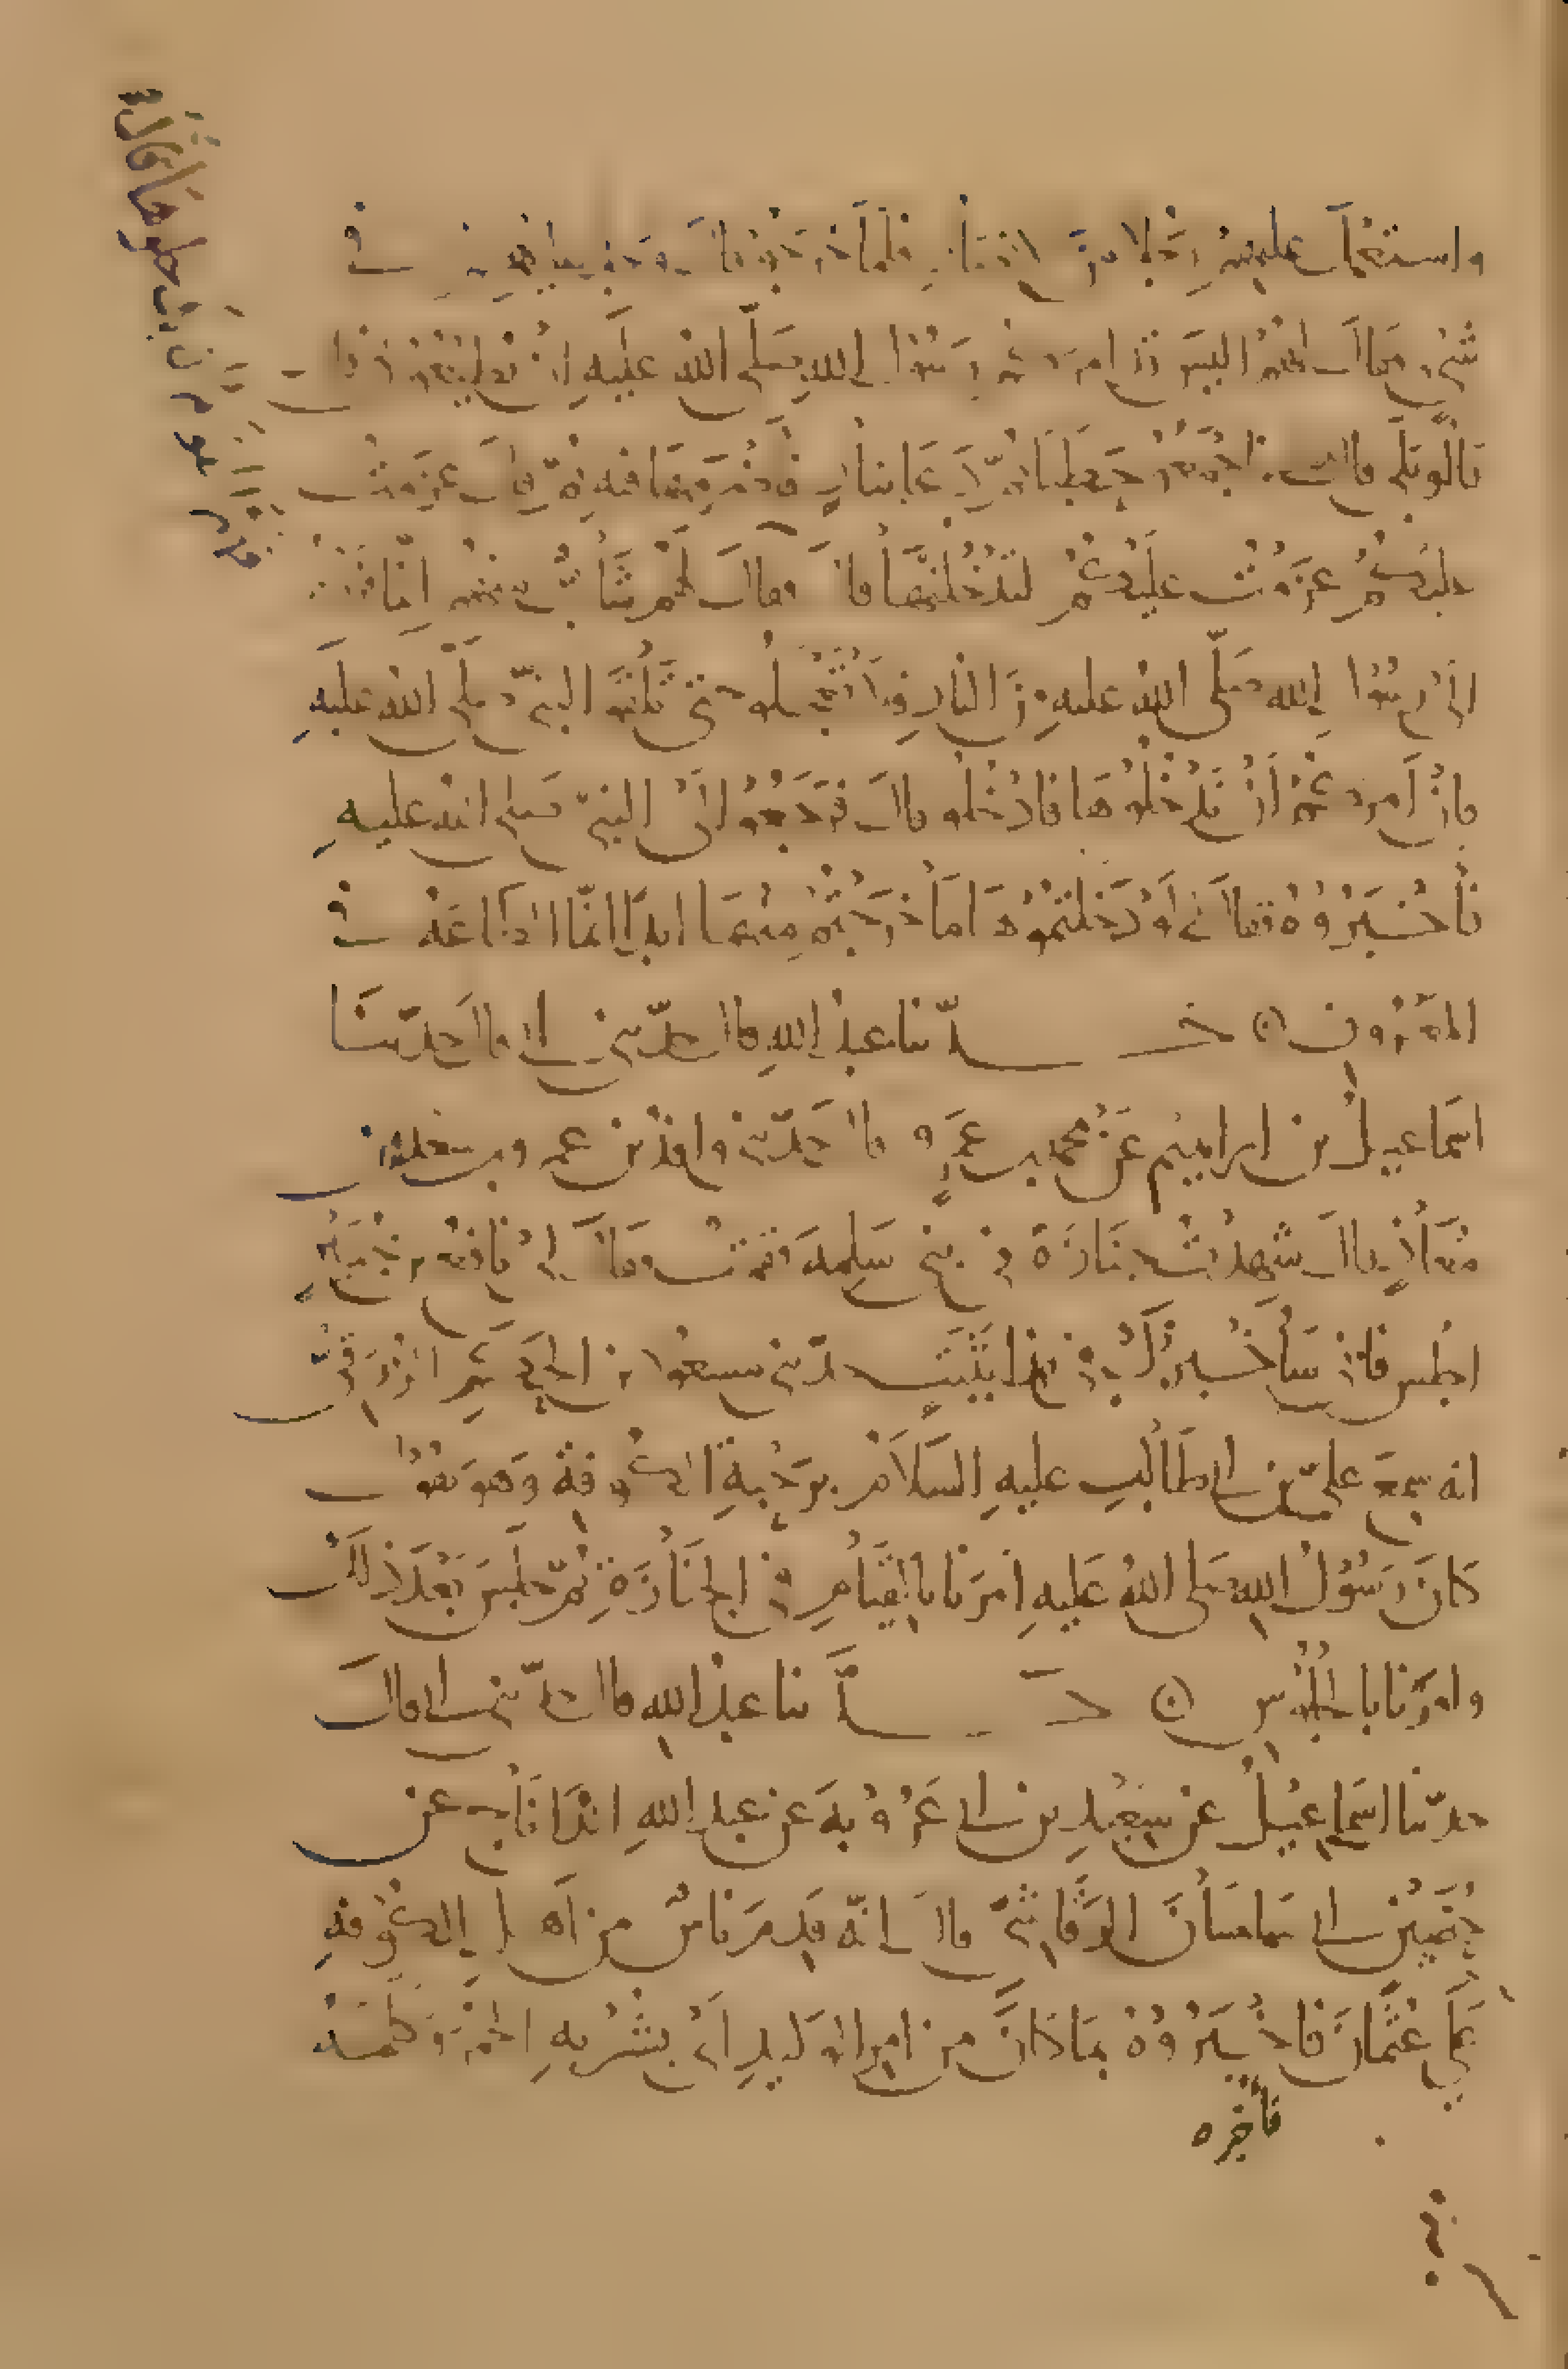 واستعمل عليهم رجلا من الانصار فلما خرجوا قال وجد عليهم في
شيء فقال لهم اليس قد امركم رسول الله صلى الله عليه ان تطيعوني قال
قالوا بلى قال اجمعوا حطبا ثم دعا بنار فاضرمها فيه ثم قال عزمت
عليكم عزمت عليكم لتدخلنها قال فقال لهم شاب منهم انما فررتم
الى رسول الله صلى الله عليه من النار فلا تعجلوا حتى تلقوا النبي صلى الله عليه
فان امركم ان تدخلوها فادخلوا قال فرجعوا الى النبي صلى الله عليه
فأخبروه فقال لو دخلتموها ما خرجتم منها ابدا انما الطاعة في
المعروف ۞ حدثنا عبد الله قال حدثني ابي قال حدثنا
اسماعيل بن ابراهيم عن محمد بن عمرو قال حدثني واقد بن عمرو بن سعد بن
معاذ قال شهدت جنازة في بني سلمة فقمت فقال لي نافع بن جبير
اجلس فاني سأخبرك في هذا بثبت حدثني مسعود بن الحكم الزرقي
انه سمع علي بن ابي طالب عليه السلام برحبة الكوفة وهو يقول
كان رسول الله صلى الله عليه امرنا بالقيام في الجنازة ثم جلس بعد ذلك
وامرنا بالجلوس ۞ حدثنا عبد الله قال حدثني ابي قال
حدثنا اسماعيل عن سعيد بن ابي عروبة عن عبد الله الداناج عن
حضين ابي ساسان الرقاشي قال انه قدم ناس من اهل الكوفة
على عثمان فاخبروه بما كان من امر الوليد اي بشربه الخمر وكلمه
فأخبره